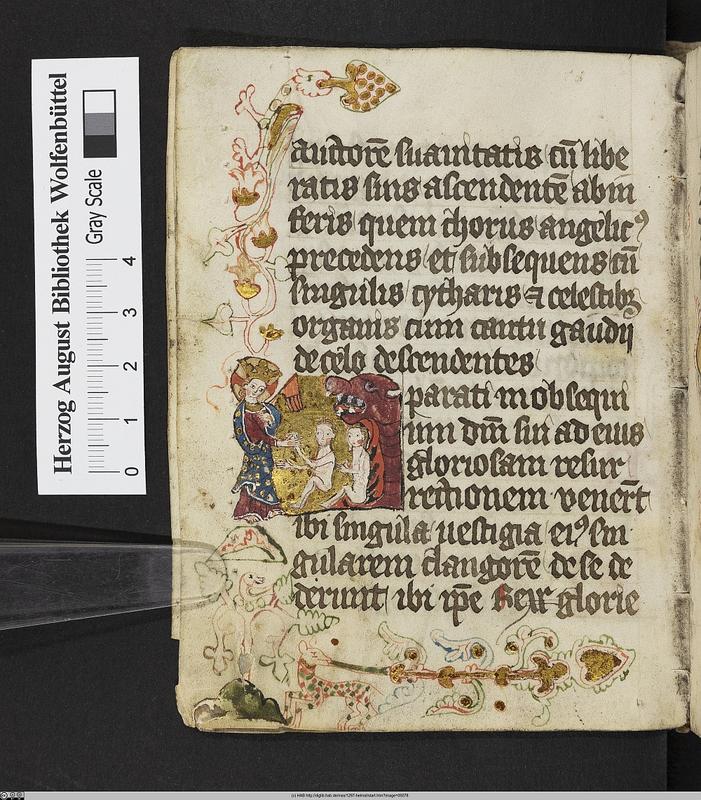 Herzog August Bibliothek Wolfenbüttel
Gray Scale
0 1 2 3 4
auctorē suauitatis cū libe
ratis suis ascendentē ab in
feris quem chorus angelicꝰ
precedens et subsequens cū
singulis cytharis ⁊ celestibꝫ
organis cum cantu gaudij
de celo descendentes
parati in obsequi
um dn̄i sui ad eius
gloriosam resur
rectionem venerūt
ibi singula uestigia eiꝰ sin
gularem clangorē de se de
derunt ibi ip̄e Rex glorie
(c) HAB http://diglib.hab.de/mss/1297-helmst/start.htm?image=00078